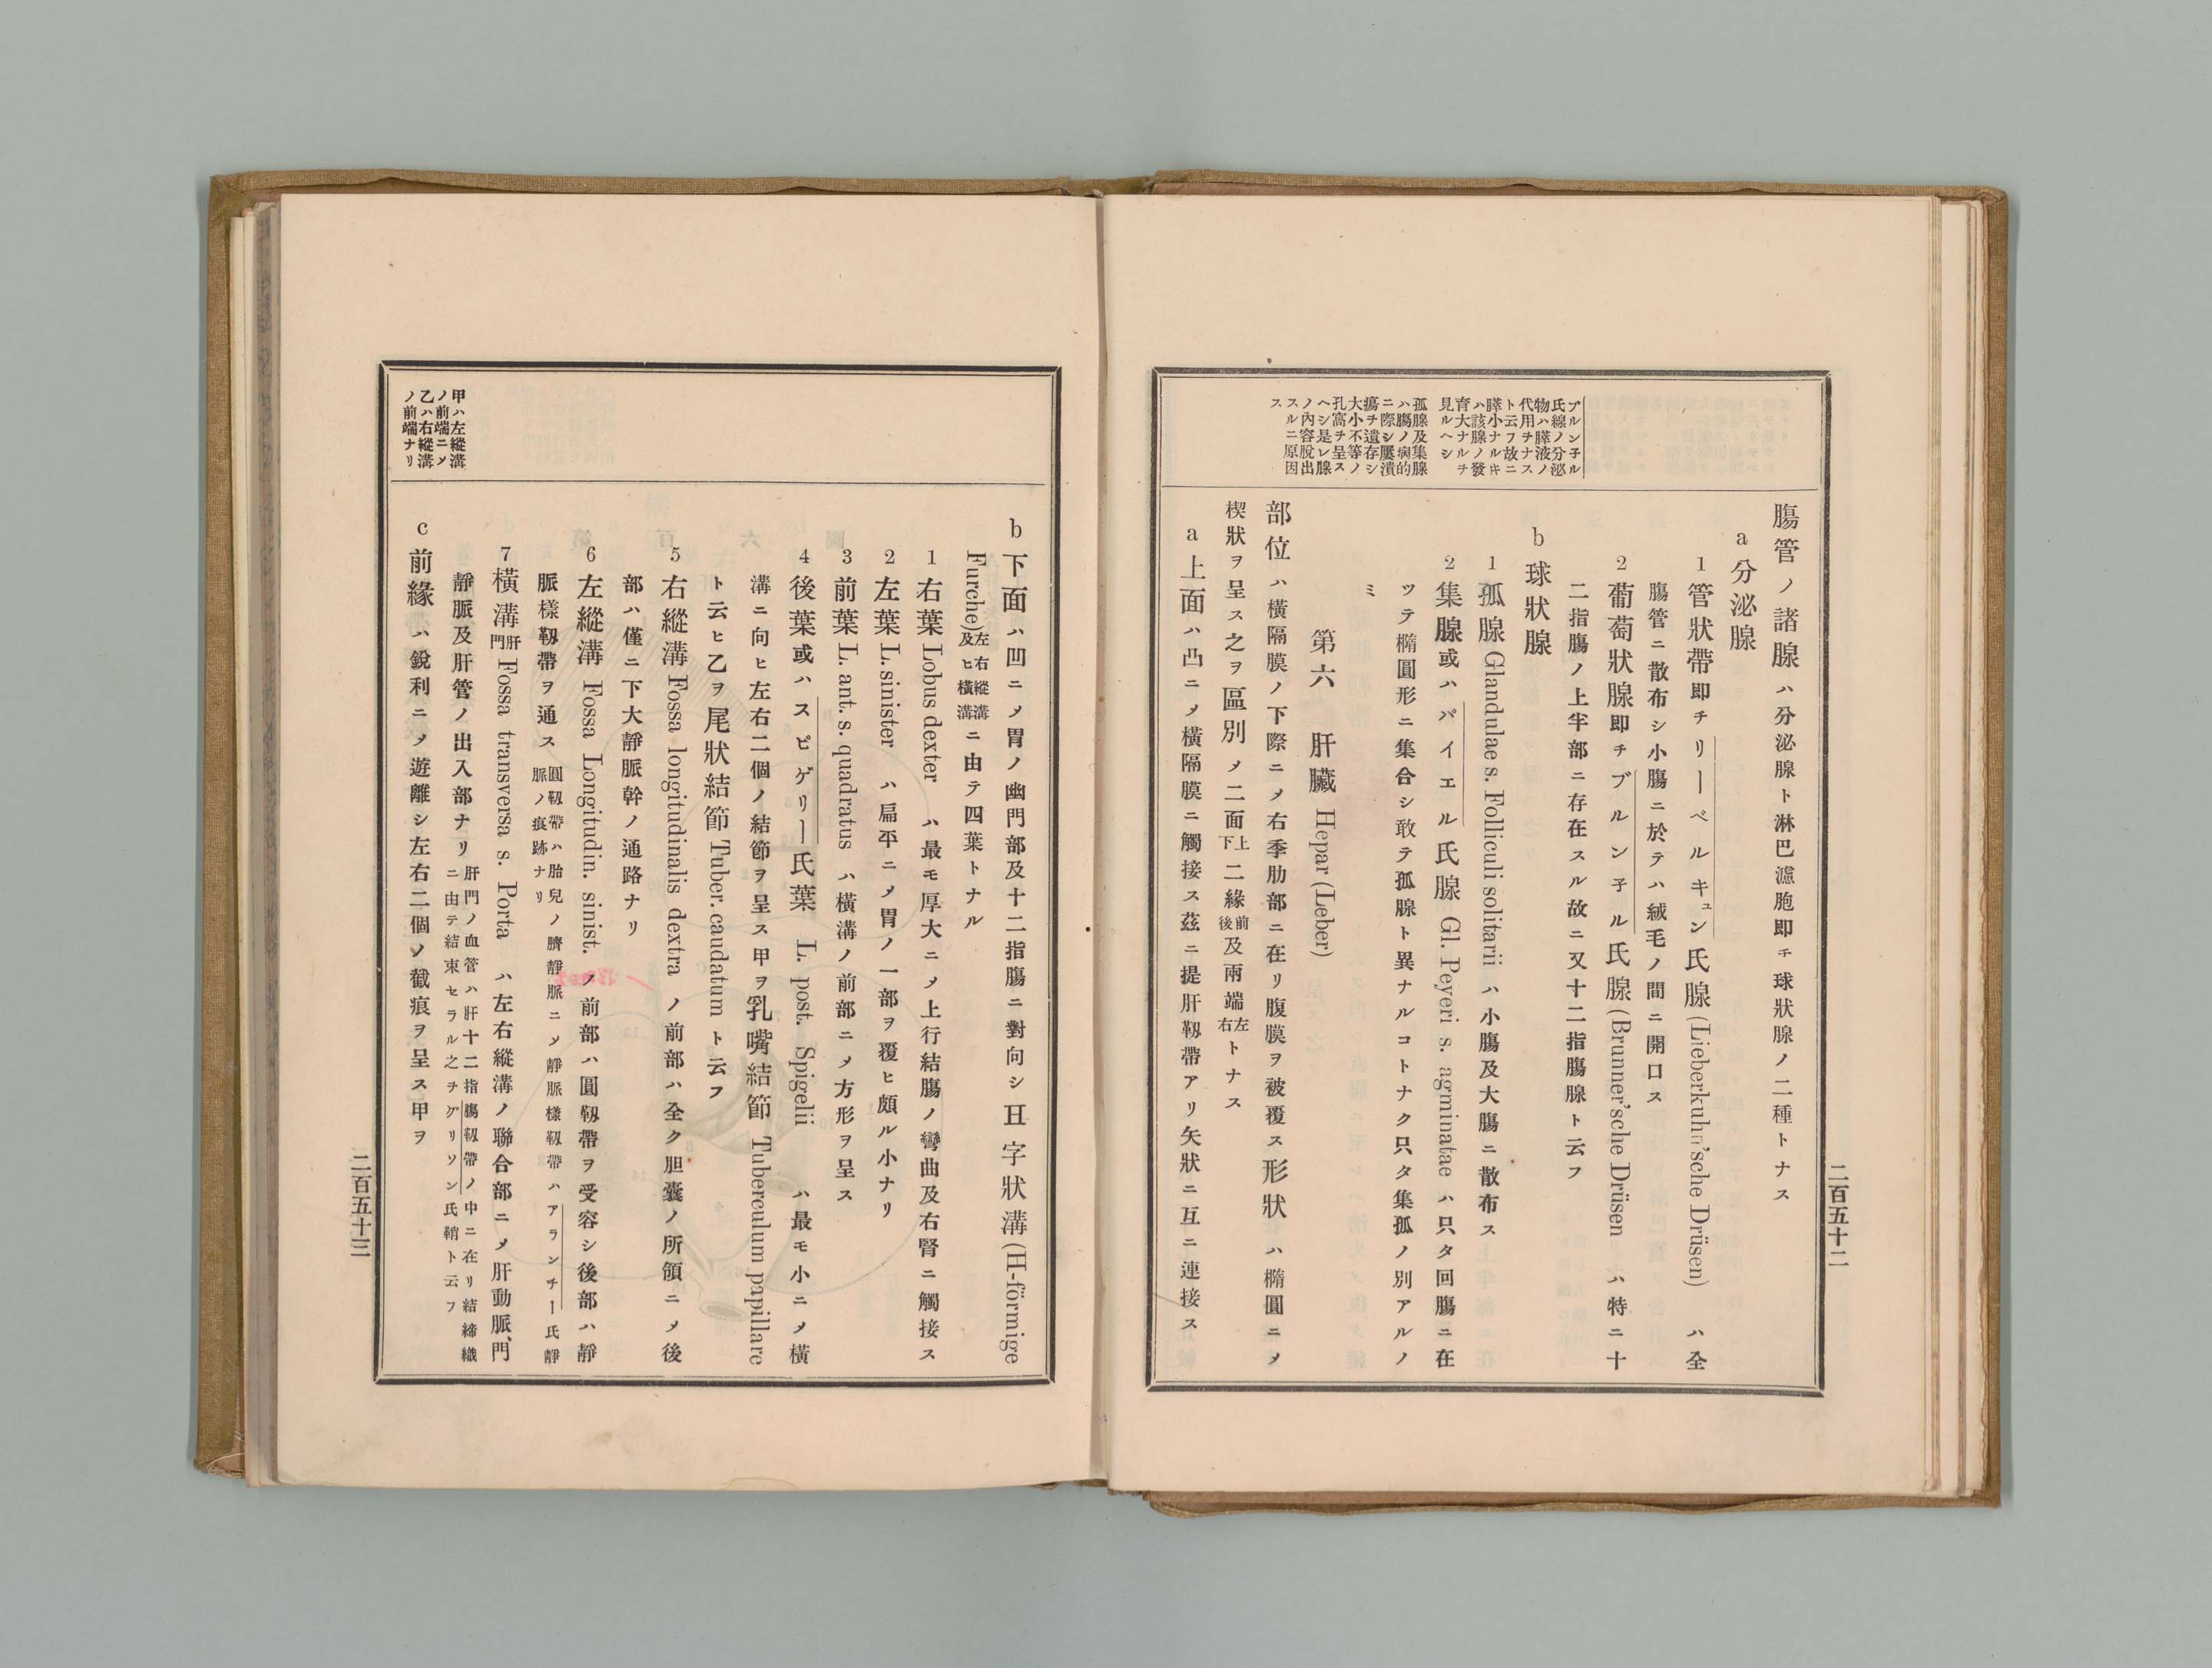 ブルン子ル
氏線ノ分泌
物ハ膵液ノ
代用ヲナス
ト云フ故ニ
膵小ナルキ
ハ該腺ノ發
育大ナルチ
見ルヘシ
孤腺及集腺
ハ腸ノ病的
ニ際シ屢潰
瘍チ遺存シ
大小不等ノ
孔窩チ呈ス
ヘシ是レ腺
ノ內容脫出
スルニ原因
ス
腸管ノ諸腺ハ分泌腺ト淋巴濾胞即チ球狀腺ノ二種トナス
a 分泌腺
1 管狀帶即チリーベルキュン氏腺(Lieberkuhn'sche Drüsen) ハ全
腸管ニ散布シ小腸ニ於テハ絨毛ノ間ニ開口ス
2 葡萄狀腺即チブルン子ル氏腺(Brunner'sche Drüsen ハ特ニ十
二指腸ノ上半部ニ存在スル故ニ又十二指腸腺ト云フ
b 球狀腺
1 孤腺 Glandulae s. Folliculi solitarii ハ小腸及大腸ニ散布ス
2 集腺或ハパイエル氏腺 Gl. Peyeri s. agminatae ハ只タ回腸ニ在
ツテ橢圓形ニ集合シ敢テ孤腺ト異ナルコトナク只タ集孤ノ別アルノ
ミ
第六 肝臟 Hepar (Leber)
部位ハ橫隔膜ノ下際ニメ右季肋部ニ在リ腹膜ヲ被覆ス形狀ハ橢圓ニメ
楔狀ヲ呈ス之ヲ區別メ二面上下二緣前後及兩端左右トナス
a 上面ハ凸ニメ橫隔膜ニ觸接ス茲ニ提肝靱帶アリ矢狀ニ互ニ連接ス
二百五十二
甲ハ左縱溝
ノ前端ニメ
乙ハ右縱溝
ノ前端ナリ
b 下面ハ凹ニメ胃ノ幽門部及十二指腸ニ對向シ H 字狀溝(H-förmige
Furche)左右縱溝及ヒ橫溝ニ由テ四葉トナル
1 右葉 Lobus dexter ハ最モ厚大ニメ上行結腸ノ彎曲及右腎ニ觸接ス
2 左葉 L. sinister ハ扁平ニメ胃ノ一部ヲ覆ヒ頗ル小ナリ
3 前葉 L. ant. s. quadratus ハ橫溝ノ前部ニメ方形ヲ呈ス
4 後葉或ハスピゲリー氏葉 L. post. Spigelii ハ最モ小ニメ橫
溝ニ向ヒ左右二個ノ結節ヲ呈ス甲ヲ乳嘴結節 Tuberculum papillare
ト云ヒ乙ヲ尾狀結節 Tuber. caudatum ト云フ
5 右縱溝 Fossa longitudinalis dextra ノ前部ハ全ク胆囊ノ所領ニメ後
部ハ僅ニ下大靜脈幹ノ通路ナリ
6 左縱溝 Fossa Longitudin. sinist. ノ前部ハ圓靱帶ヲ受容シ後部ハ靜
脈樣靱帶ヲ通ス 圓靱帶ハ胎兒ノ臍靜脈ニメ靜脈樣靱帶ハアランチー氏靜脈ノ痕跡ナリ
7 橫溝肝門 Fossa transversa s. Porta ハ左右縱溝ノ聯合部ニメ肝動脈、門
靜脈及肝管ノ出入部ナリ 肝門ノ血管ハ肝十二指腸靱帶ノ中ニ在リ結締織ニ由テ結束セラル之チグリソン氏鞘ト云フ
c 前緣ハ銳利ニメ遊離シ左右二個ノ截痕ヲ呈ス甲ヲ
二百五十三